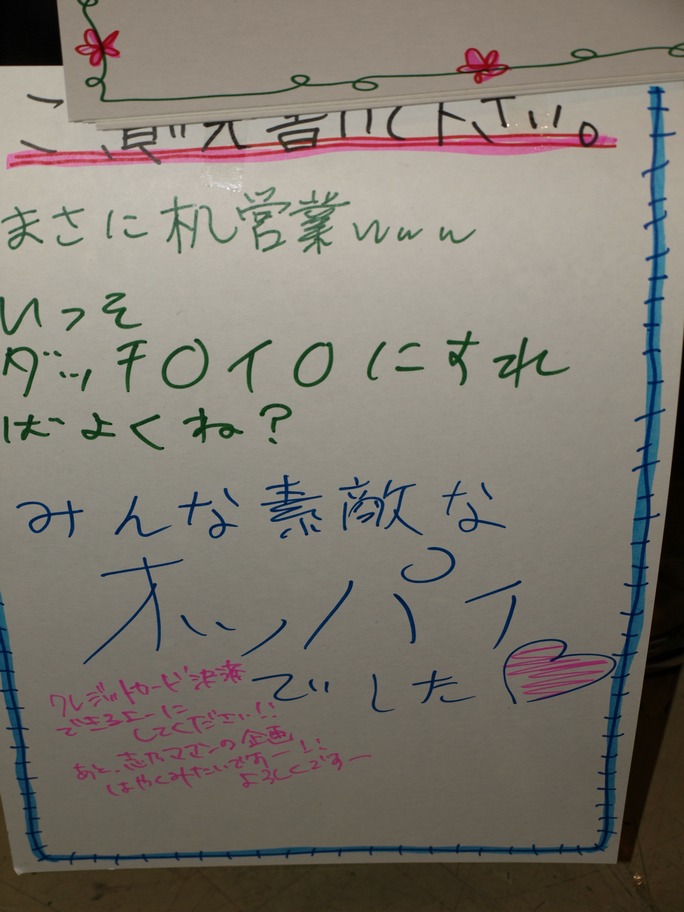 ご意見書いて下さい。
まさに机営業www
いっそ
ダッチ〇イ〇にすれ
ばよくね?
みんな素敵な
オッパイ
でした
クレジットカード決済
できるよーに
してください!!
あと、志乃ママンの企画
はやくみたいですー!!
よろしくですー